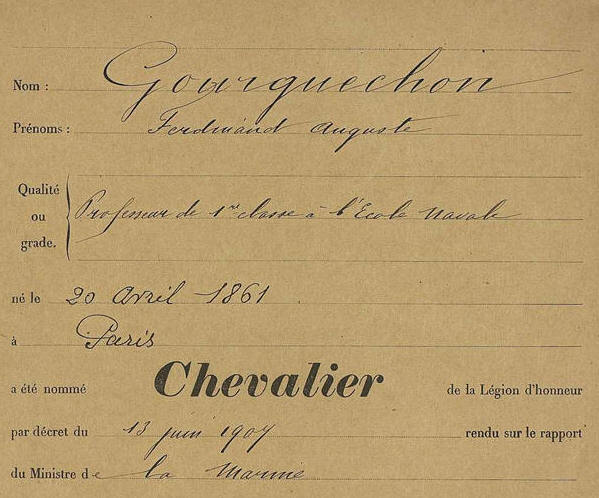 Nom : Gourguechon
Prénoms : Ferdinand Auguste
Qualité
ou
grade.
Professeur de 1re classe à l'Ecole navale
né le 20 Avril 1861
à Paris
a été nommé Chevalier de la Légion d'honneur
par décret du 13 juin 1907 rendu sur le rapport
du Ministre de la Marine